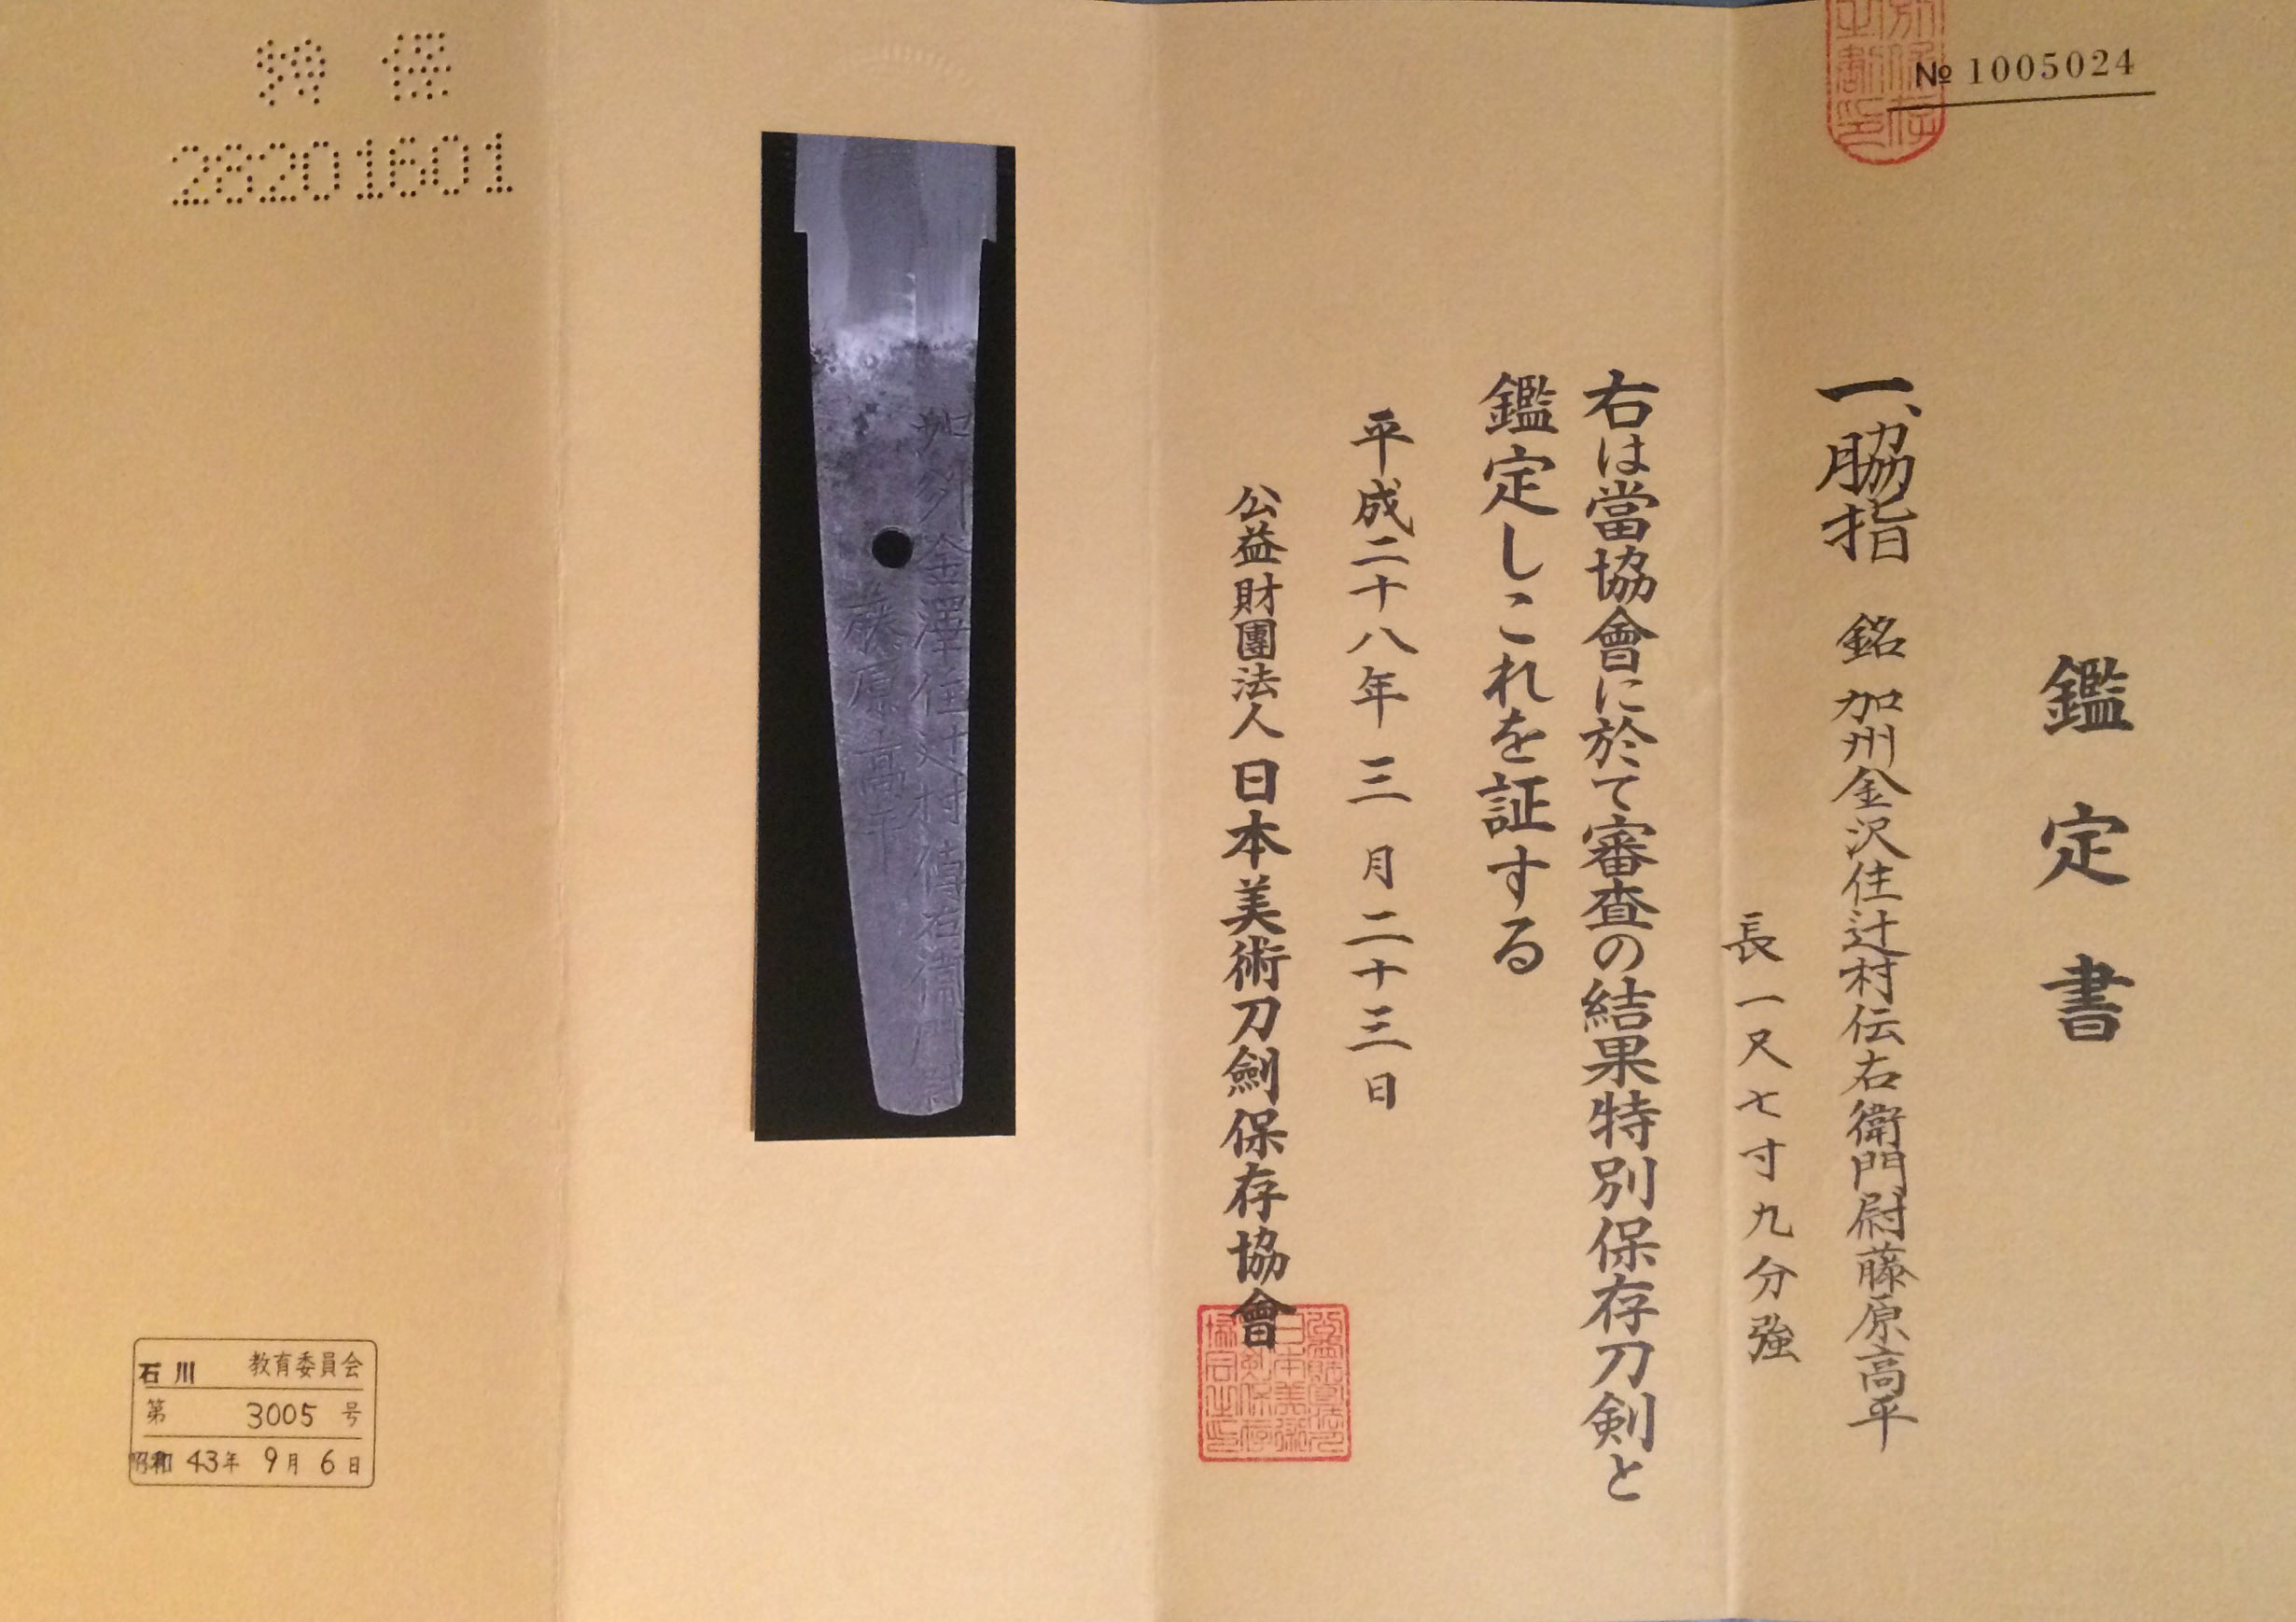 № 1005024
鑑定書
一、脇指 銘 加州金沢住辻村伝右衛門尉藤原高平
長一尺七寸九分強
右は當協會に於て審査の結果特別保存刀剣と
鑑定しこれを証する
平成二十八年三月二十三日
公益財團法人 日本美術刀劍保存協會
加州金澤住辻村傳右衛門尉
藤原高平
特保
28201601
石川 教育委員会
第 3005 号
昭和 43年 9月 6日